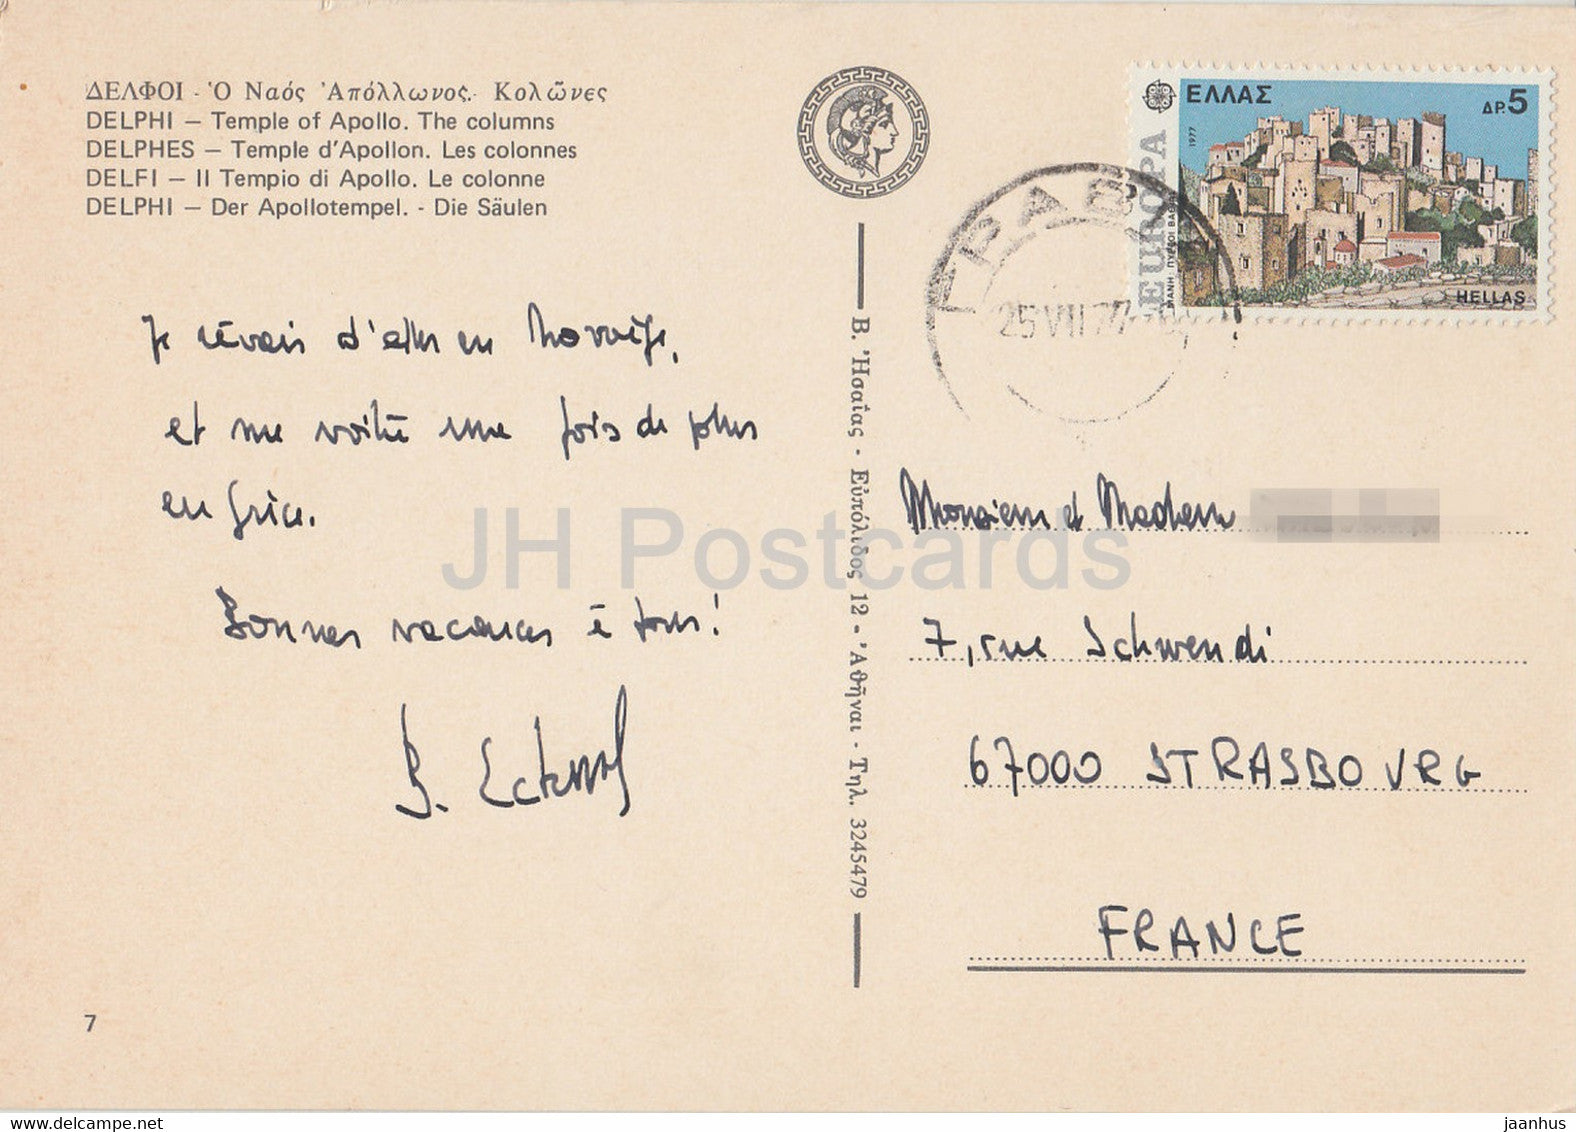 ΔΕΛΦΟΙ - Ὁ Ναός Ἀπόλλωνος. Κολῶνες
DELPHI – Temple of Apollo. The columns
DELPHES – Temple d'Apollon. Les colonnes
DELFI – Il Tempio di Apollo. Le colonne
DELPHI – Der Apollotempel. - Die Säulen
Je rêvais d'aller en Norvège,
et me voilà une fois de plus
en Grèce.
Bonnes vacances à tous!
7
Β. Ἠσαΐας - Εὐπόλιδος 12 - Ἀθῆναι - Τηλ. 3245479
ΕΛΛΑΣ ΔΡ. 5
1977
EUROPA
HELLAS
25 VII 77
Monsieur et Madame
7, rue Schwendi
67000 STRASBOURG
FRANCE
JH Postcards
delcampe.net
jaanhus